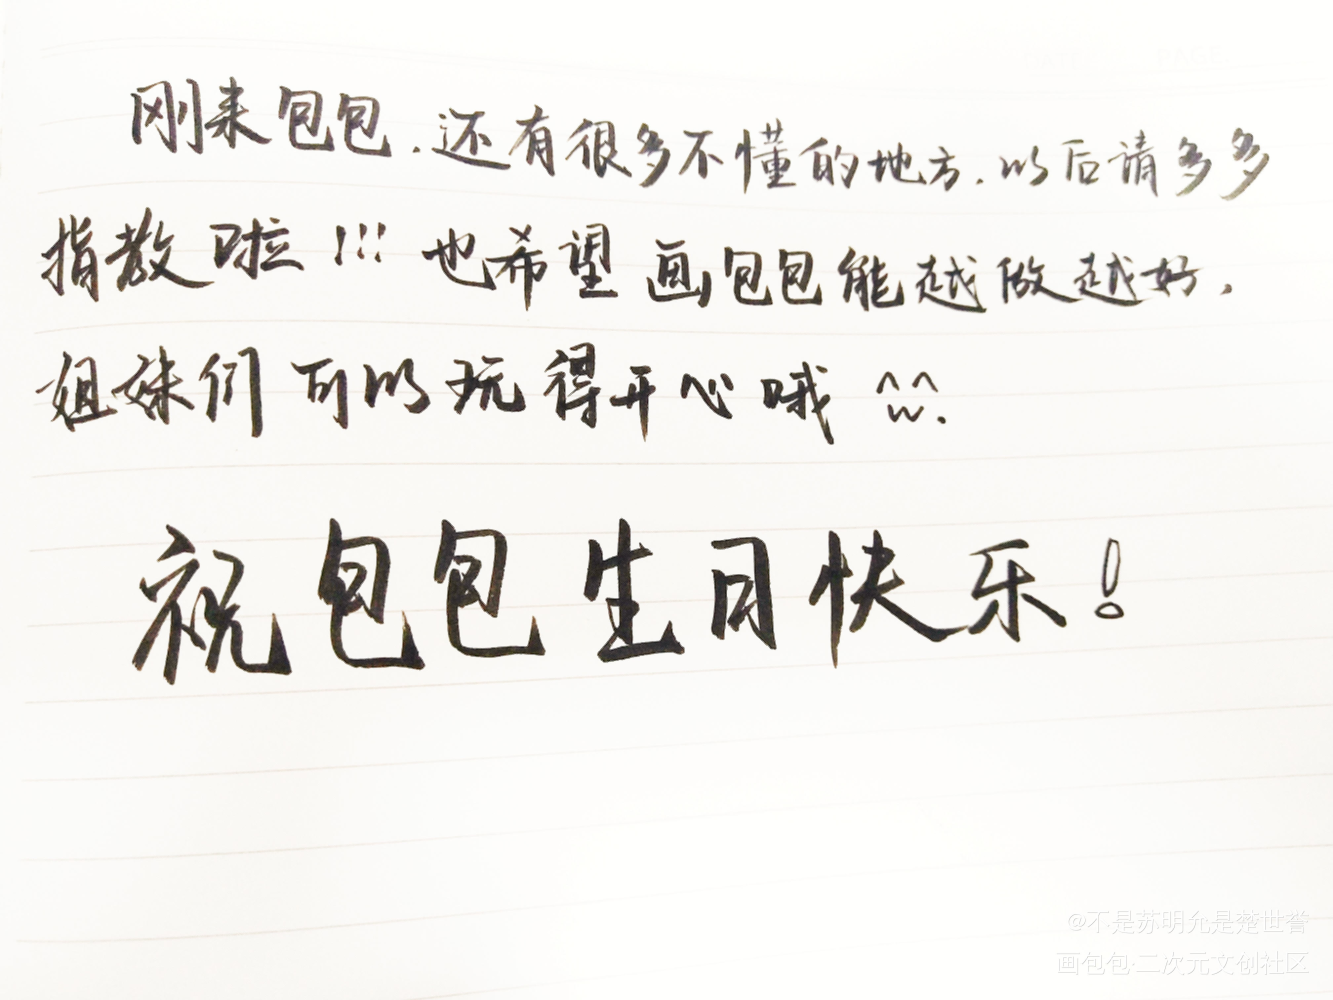 PAGE
刚来包包.还有很多不懂的地方.以后请多多
指教啦!!!也希望画包包能越做越好,
姐妹们可以玩得开心哦 ^w^.
祝包包生日快乐!
@不是苏明允是楚世誉
画包包·二次元文创社区